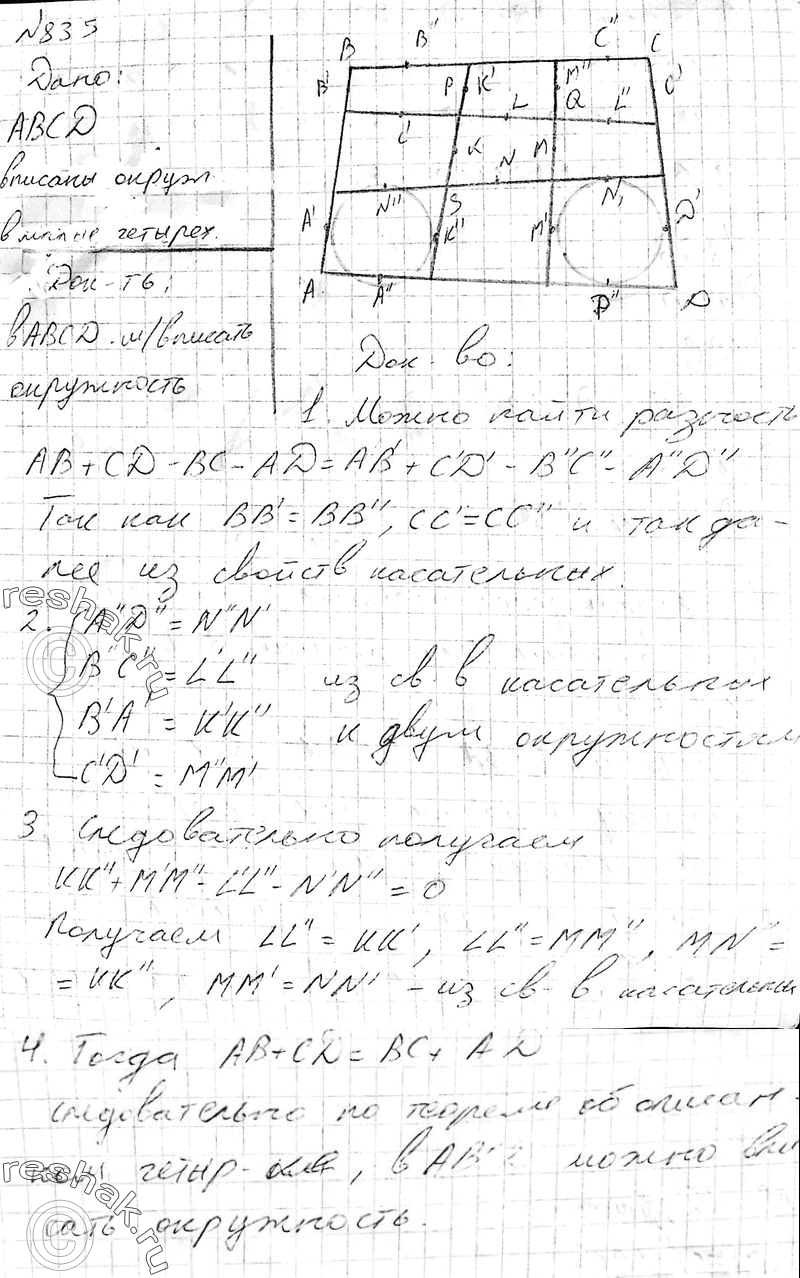 №835
Дано:
ABCD
вписаны окруж.
в малые четырех.
Док-ть:
в ABCD м/вписать
окружность
B B'' C'' C
B' P K' M'' C'
L Q L''
L'
K N M
N'' S N'
A' K'' M' D'
A A'' D'' D
Док-во:
1. Можно найти разность
AB + CD - BC - AD = A'B' + C'D' - B''C'' - A''D''
Так как BB' = BB'', CC' = CC'' и так да-
лее из свойств касательных.
2. A''D'' = N''N'
B''C'' = L'L'' из св-в касательных
B'A' = K'K'' к двум окружностям
C'D' = M''M'
3. Следовательно получаем
K'K'' + M'M'' - L'L'' - N'N'' = 0
Получаем LL'' = KK', LL'' = MM'', MN'' =
= KK'', MM' = NN' - из св-в касательных
4. Тогда AB + CD = BC + AD
следовательно по теореме об описан-
ном четыр-ке, в ABC можно впи
сать окружность.
reshak.ru
reshak.ru